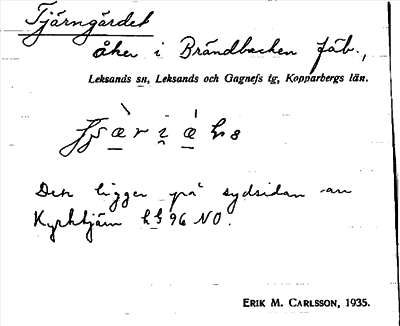 Tjärngärdet
åker i Brändbacken fäb.,
Leksands sn, Leksands och Gagnefs tg, Kopparbergs län.
Den ligger på sydsidan av
Kyrktjärn 96 NO.
ERIK M. CARLSSON, 1935.